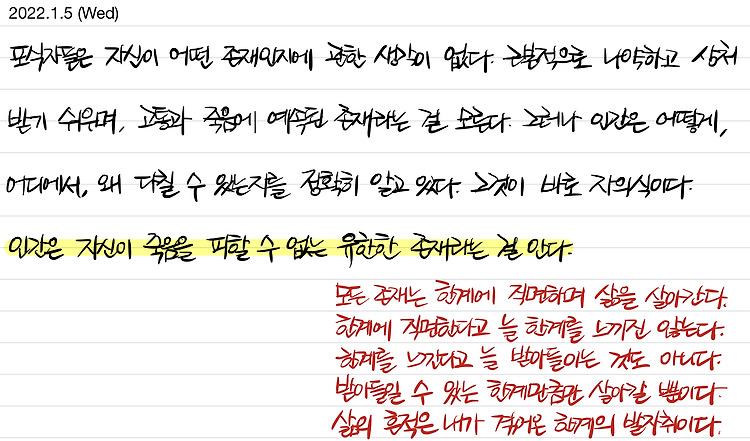 2022.1.5 (Wed)
포식자들은 자신이 어떤 존재인지에 관한 생각이 없다. 근본적으로 나약하고 상처
받기 쉬우며, 고통과 죽음에 예속된 존재라는 걸 모른다. 그러나 인간은 어떻게,
어디에서, 왜 다칠 수 있는지를 정확히 알고 있다. 그것이 바로 자의식이다.
인간은 자신이 죽음을 피할 수 없는 유한한 존재라는 걸 안다.
모든 존재는 한계에 직면하며 삶을 살아간다.
한계에 직면한다고 늘 한계를 느끼진 않는다.
한계를 느낀다고 늘 받아들이는 것도 아니다.
받아들일 수 있는 한계만큼만 살아갈 뿐이다.
삶의 흔적은 내가 겪어온 한계의 발자취이다.